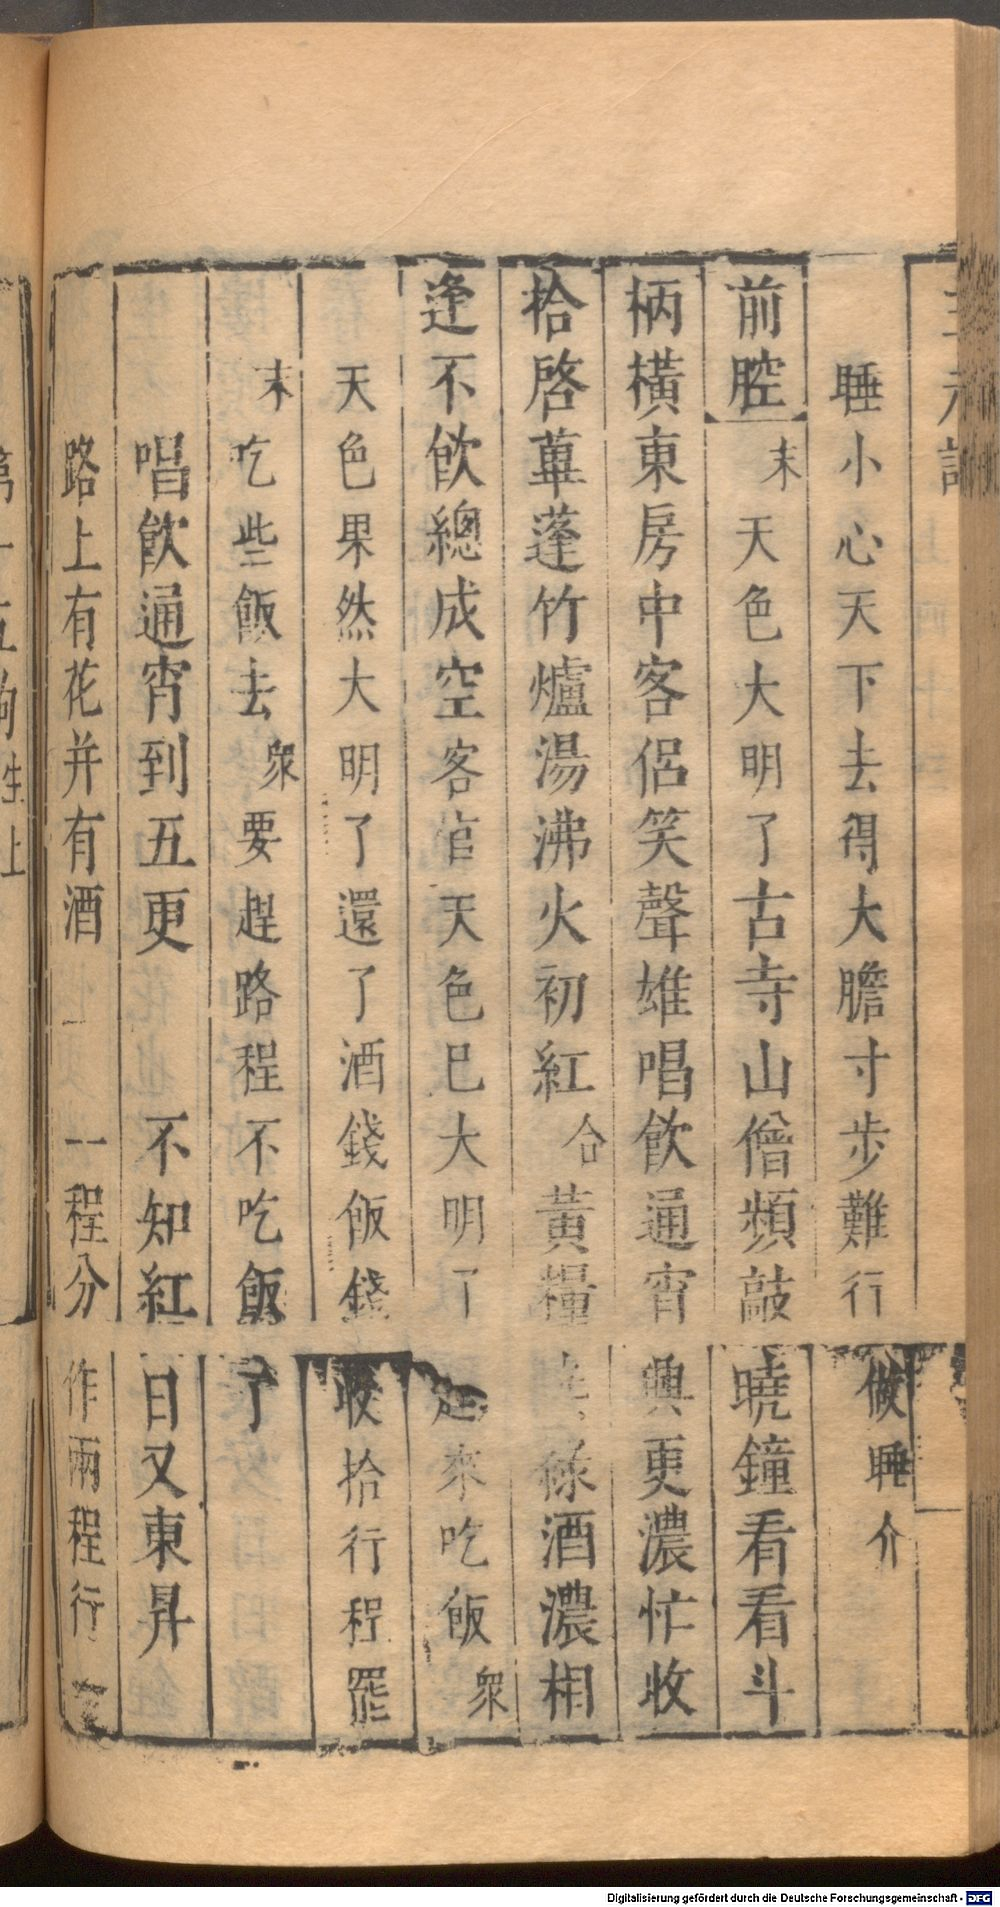 三元記
睡小心天下去得大膽寸步難行做睡介
前腔末天色大明了古寺山僧頻敲曉鐘看看斗
柄橫東房中客侶笑聲雄唱飲通宵興更濃忙收
拾啓葷蓬竹爐湯沸火初紅合黃糧 綠酒濃相
逢不飲總成空客官天色巳大明了起來吃飯衆
天色果然大明了還了酒錢飯錢收拾行程罷
末吃些飯去衆要趕路程不吃飯了
唱飲通宵到五更 不知紅日又東昇
路上有花并有酒 一程分作兩程行
Digitalisierung gefördert durch die Deutsche Forschungsgemeinschaft - DFG